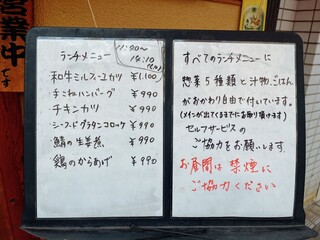 営業中
です
ランチメニュー
11:30〜
14:10
和牛ミルフィーユカツ ¥1,100
手ごねハンバーグ ¥990
チキンカツ ¥990
シーフードグラタンコロッケ ¥990
鯖の生姜煮 ¥990
鶏のからあげ ¥990
すべてのランチメニューに
惣菜5種類と汁物、ごはん
がおかわり自由で付いています。
(メインが出てくるまでにお取り頂けます)
セルフサービスの
ご協力をお願いします
お昼間は禁煙に
ご協力ください